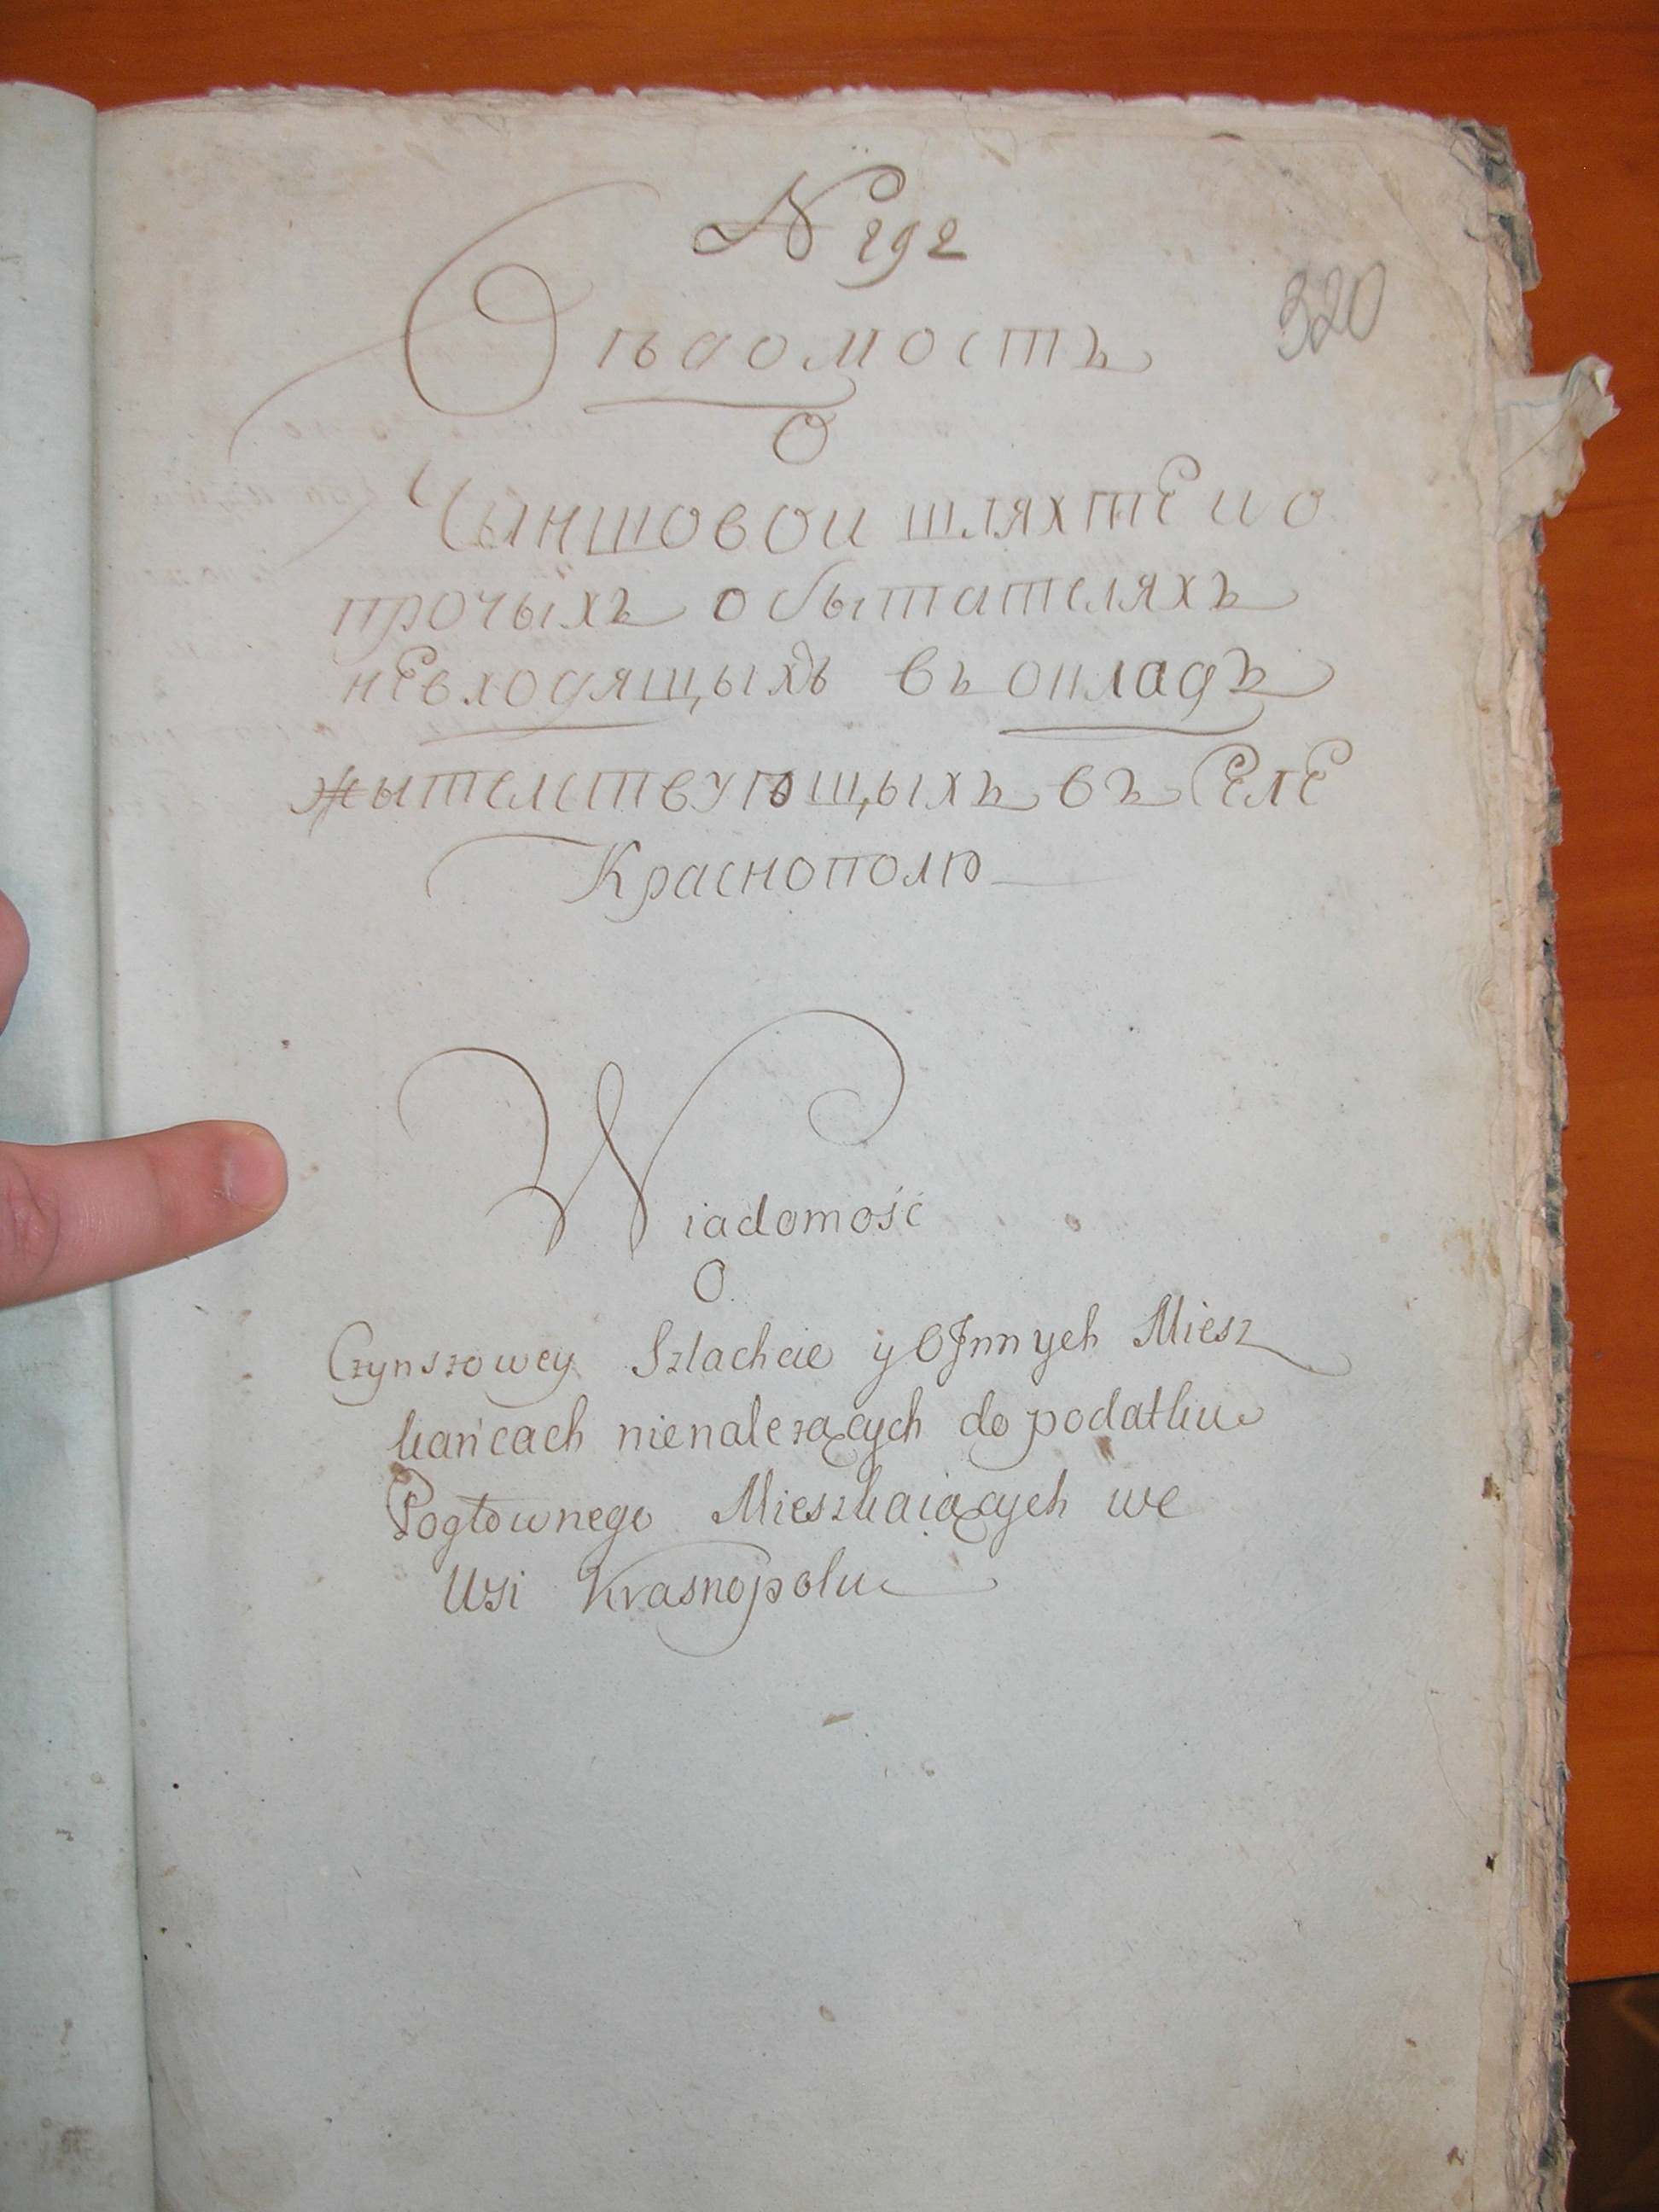 N 292
320
Вѣдомость
О
Чыншовои шляхтѣ и о
прочыхъ обытателяхъ
невходящыхъ въ окладъ
жытелствующыхъ въ селе
Краснополю
Wiadomość
O
Czynszowey Szlachcie y O Jnnych Miesz
kańcach nienależących do podatku
Pogłownego Mieszkaiących we
Wsi Krasnopolu